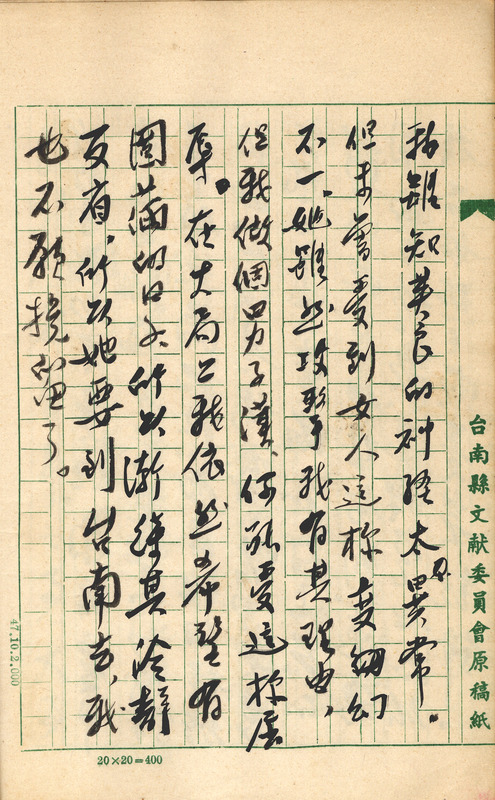 我雖知英良的神經太不異常。
但未曾受到女人這樣變翻幻
不一、她雖然攻擊我有其理由，
但我做個男子漢，何能受這樣辱
辱。在大局上我依然希望有
圓滿的日子，所以漸待其冷靜
反省，所以她要到台南去，我
也不願挽留了。
台南縣文献委員會原稿紙
47.10.2,000
20×20=400